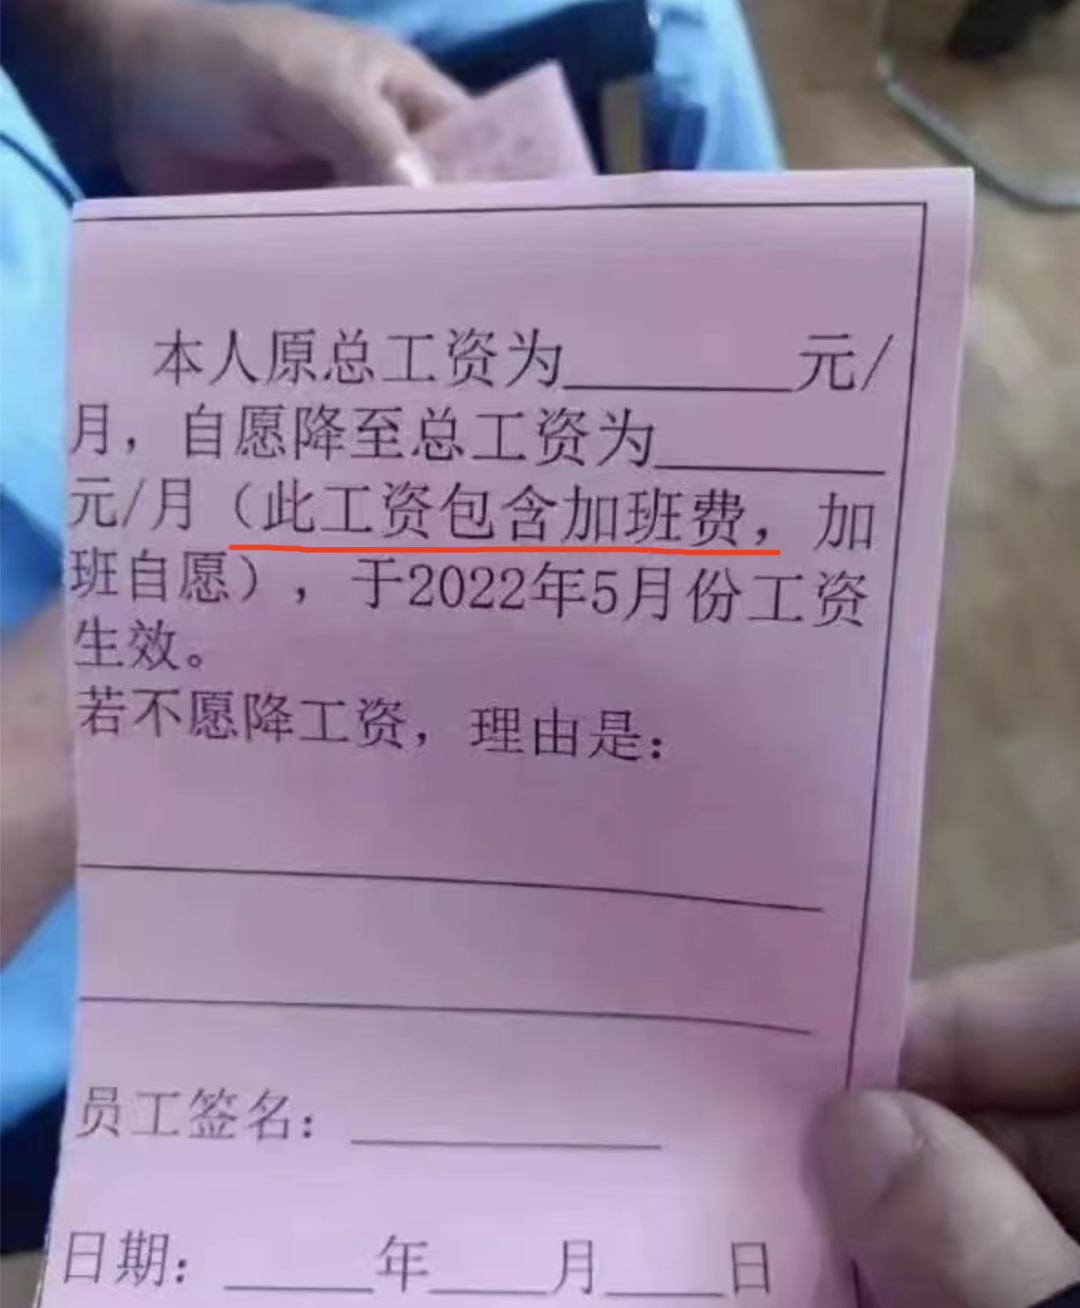 本人原总工资为________元/
月，自愿降至总工资为________
元/月（此工资包含加班费，加
班自愿），于2022年5月份工资
生效。
若不愿降工资，理由是：
员工签名：__________
日期：_____年____月____日